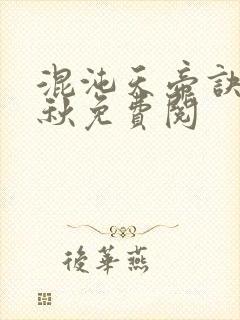 混沌天帝訣
秋免費閱
後華燕